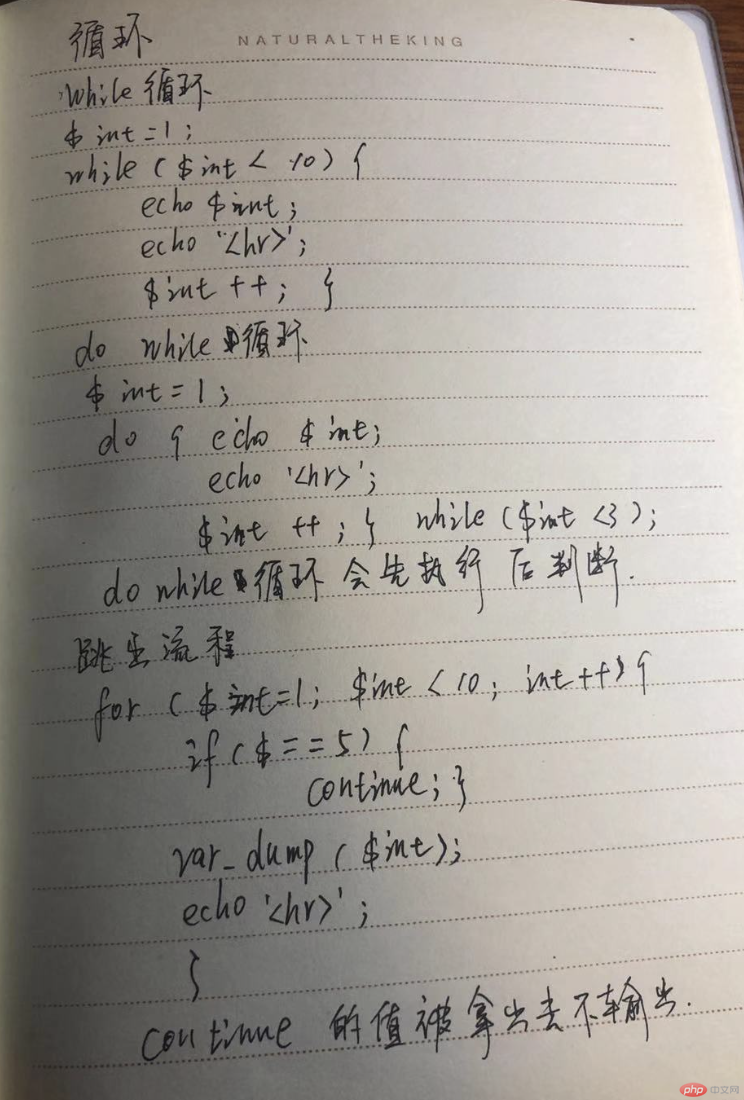 NATURALTHEKING
循环
while 循环
$ int = 1;
while ( $ int < 10 ) {
echo $ int;
echo '<hr>';
$ int ++; }
do while 循环
$ int = 1;
do { echo $ int;
echo '<hr>';
$ int ++; } while ( $ int < 3 );
do while 循环 会先执行 后判断.
跳出流程
for ( $ int = 1; $ int < 10; int ++ ) {
if ( $ == 5 ) {
continue; }
var_dump ( $ int );
echo '<hr>';
}
continue 的值被拿出去不输出.
php 中文网